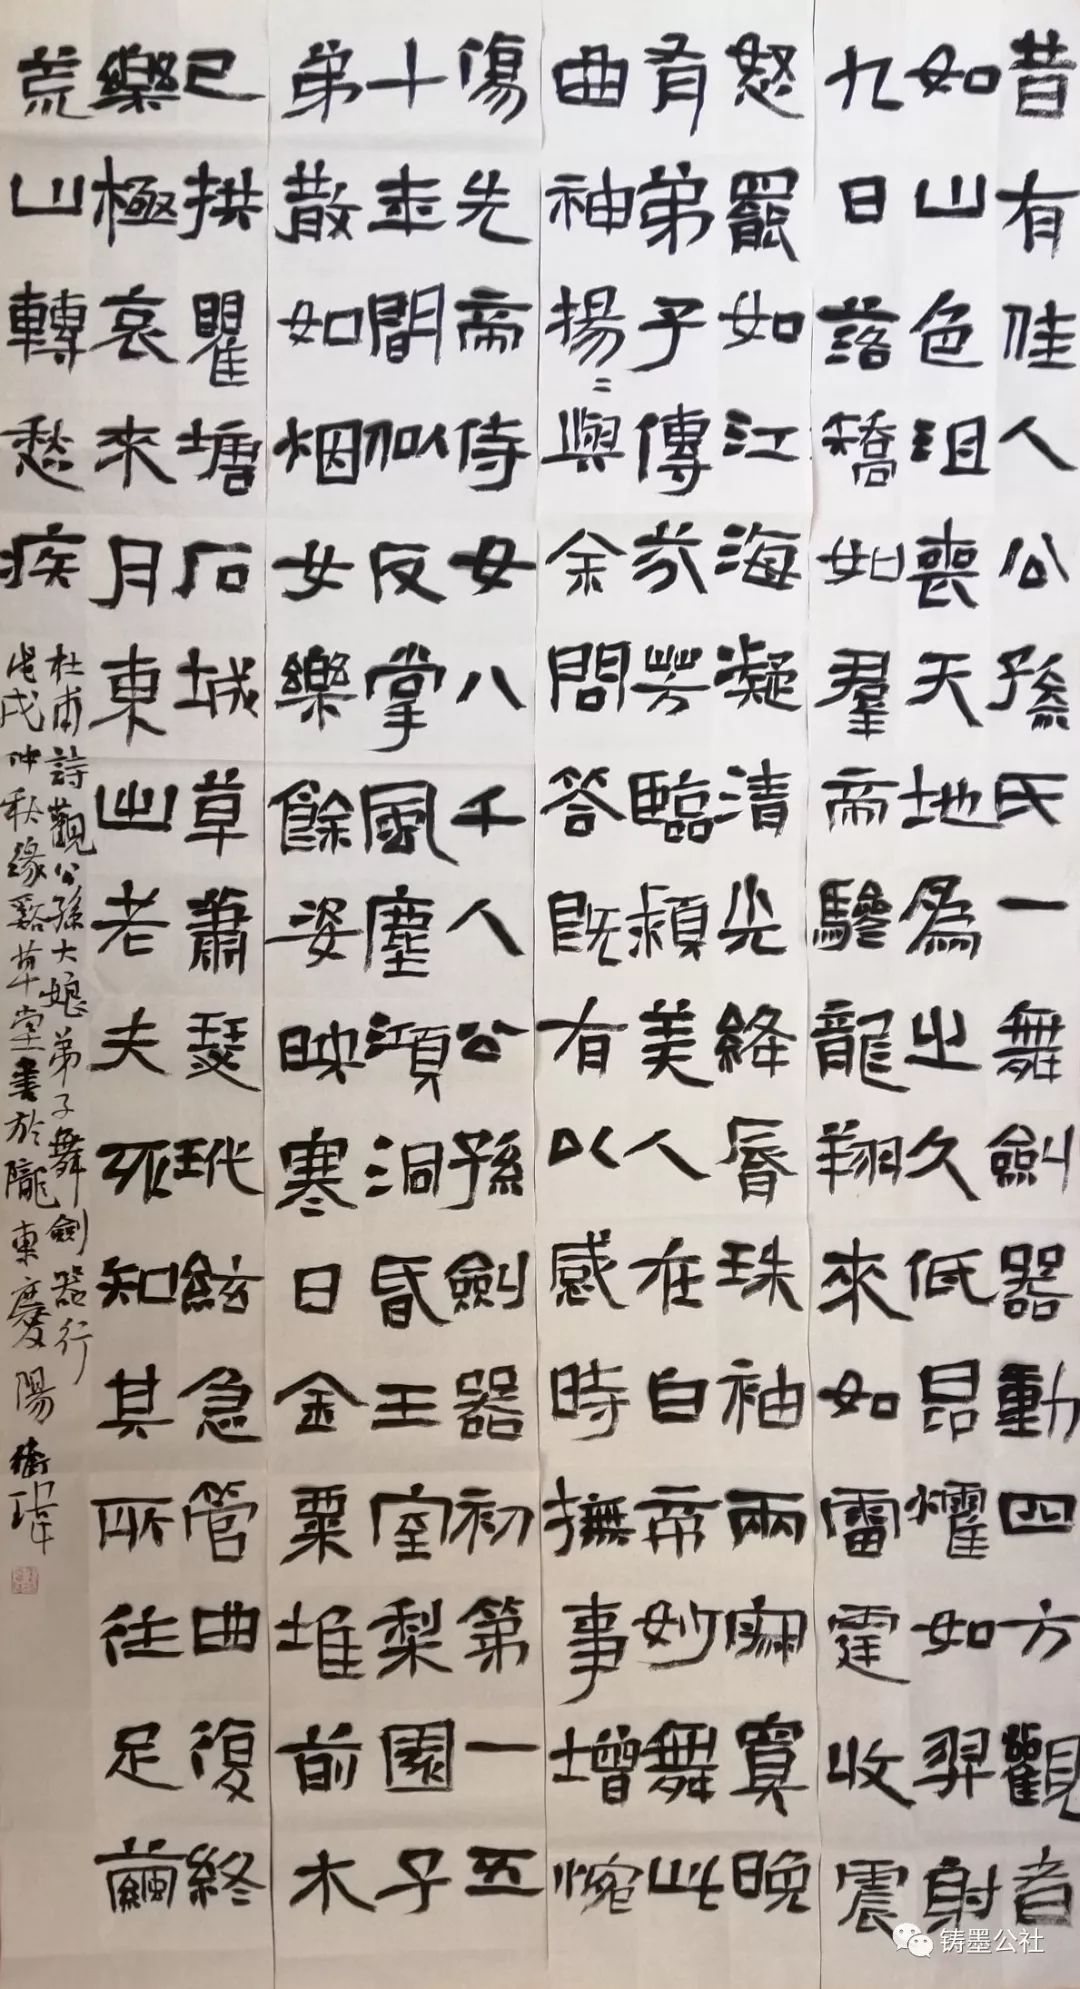 昔有佳人公孫氏一舞劍器動四方觀者
如山色沮喪天地為之久低昂㸌如羿射
九日落矯如羣帝驂龍翔來如雷霆收震
怒罷如江海凝清光絳脣珠袖兩寂寞晚
有弟子傳芬芳臨潁美人在白帝妙舞此
曲神揚〻與余問答既有以感時撫事增惋
傷先帝侍女八千人公孫劍器初第一五
十年間似反掌風塵澒洞昏王室梨園子
弟散如烟女樂餘姿映寒日金粟堆前木
已拱瞿塘石城草蕭瑟玳絃急管曲復終
樂極哀來月東出老夫不知其所往足繭
荒山轉愁疾
杜甫詩觀公孫大娘弟子舞劍器行
戊戌仲秋緣谿草堂書於隴東慶陽衛瑋
铸墨公社